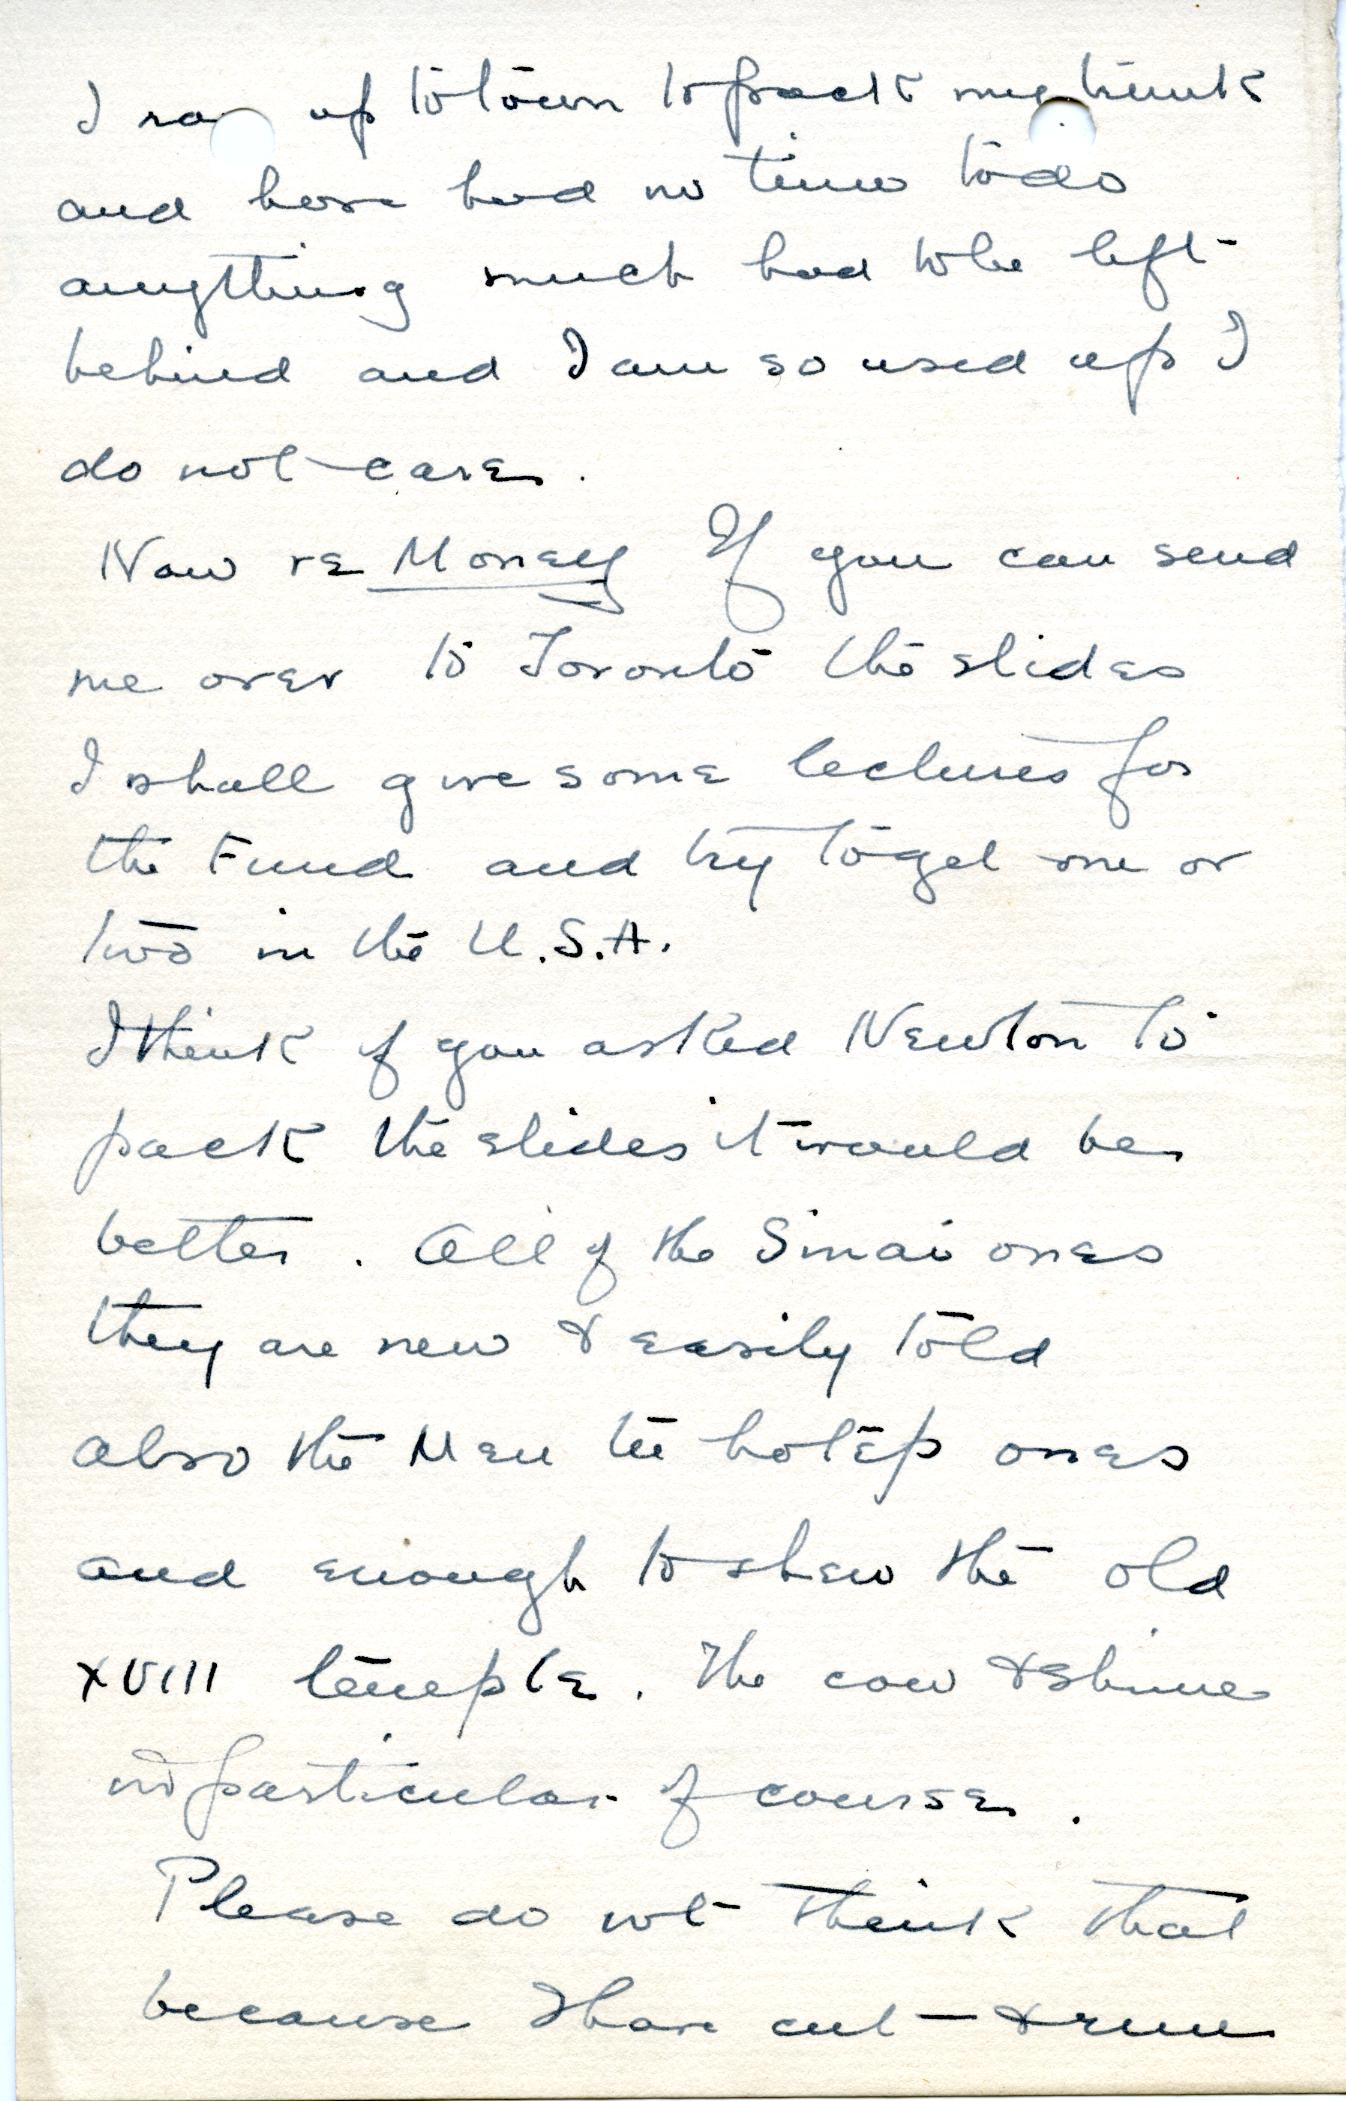 I ra up to town to pack my trunk
and have had no time to do
anything much had to be left
behind and I am so used up I
do not care.
Now re Money If you can send
me over to Toronto the slides
I shall give some lectures for
the Fund and try to get one or
two in the U.S.A.
I think if you asked Newton to
pack the slides it would be
better. All of the Sinai ones
they are new & easily told
also the Men tu hotep ones
and enough to shew the old
XVIII temple. The cow & Shrine
in particular of course.
Please do not think that
because I have cut — & run